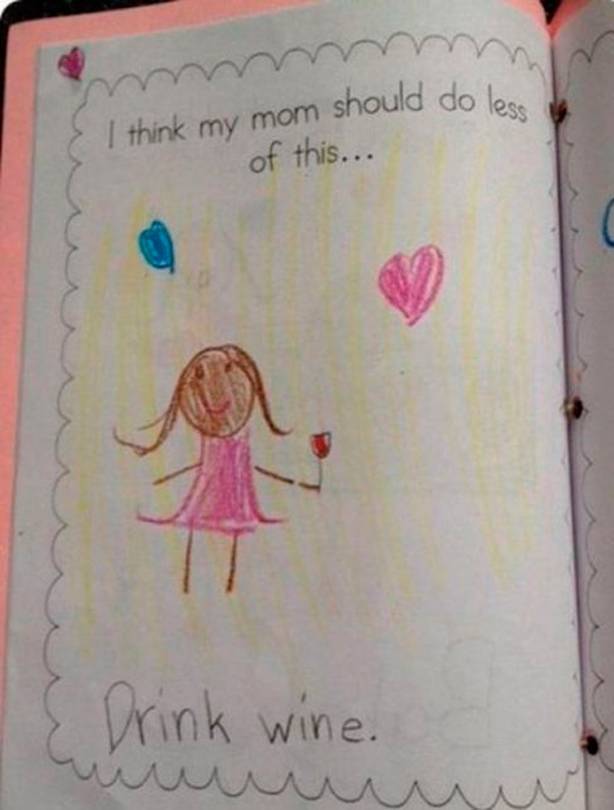 I think my mom should do less
of this...
Drink wine.